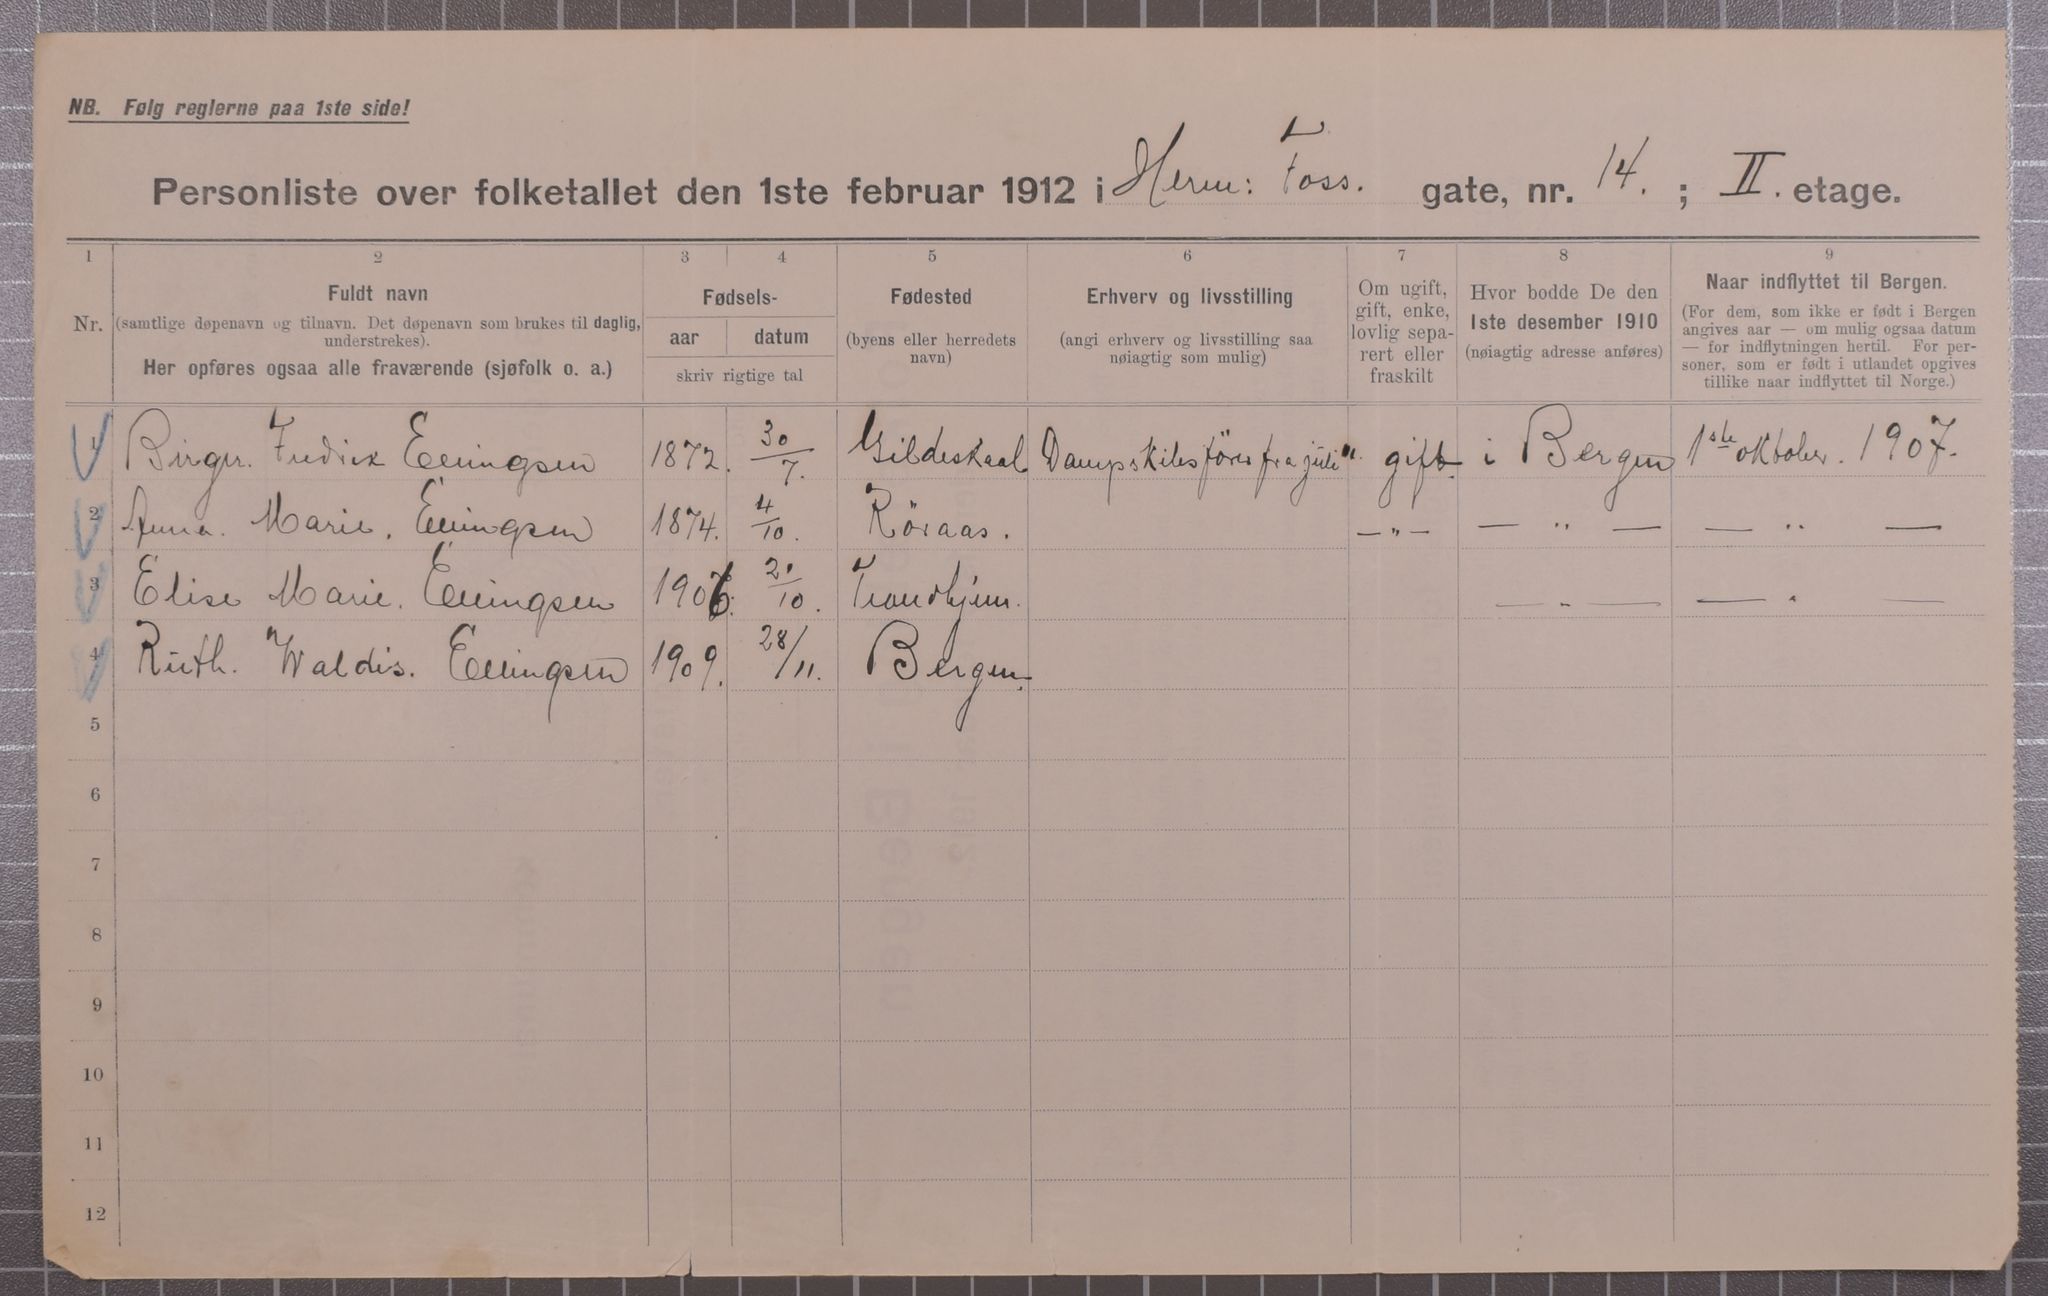 NB. Følg reglerne paa 1ste side!
Personliste over folketallet den 1ste februar 1912 i Herm: Foss. gate, nr. 14. ; II. etage.
1 2 3 4 5 6 7 8 9
Nr.
Fuldt navn
(samtlige døpenavn og tilnavn. Det døpenavn som brukes til daglig, understrekes).
Her opføres ogsaa alle fraværende (sjøfolk o. a.)
Fødsels-
aar datum
skriv rigtige tal
Fødested
(byens eller herredets
navn)
Erhverv og livsstilling
(angi erhverv og livsstilling saa
nøiagtig som mulig)
Om ugift,
gift, enke,
lovlig sepa-
rert eller
fraskilt
Hvor bodde De den
1ste desember 1910
(nøiagtig adresse anføres)
Naar indflyttet til Bergen.
(For dem, som ikke er født i Bergen
angives aar — om mulig ogsaa datum
— for indflytningen hertil. For per-
soner, som er født i utlandet opgives
tillike naar indflyttet til Norge.)
1 Birger. Fredrik Ellingsen 1872. 30/7. Gildeskaal gift. i Bergen 1ste oktober. 1907.
2 Anna. Marie. Ellingsen 1874. 4/10. Røraas. — " — — " — — " —
3 Elise Marie. Ellingsen 1906. 20/10. Trondhjem. — " — — " —
4 Ruth. Waldis. Ellingsen 1909. 28/11. Bergen.
5
6
7
8
9
10
11
12